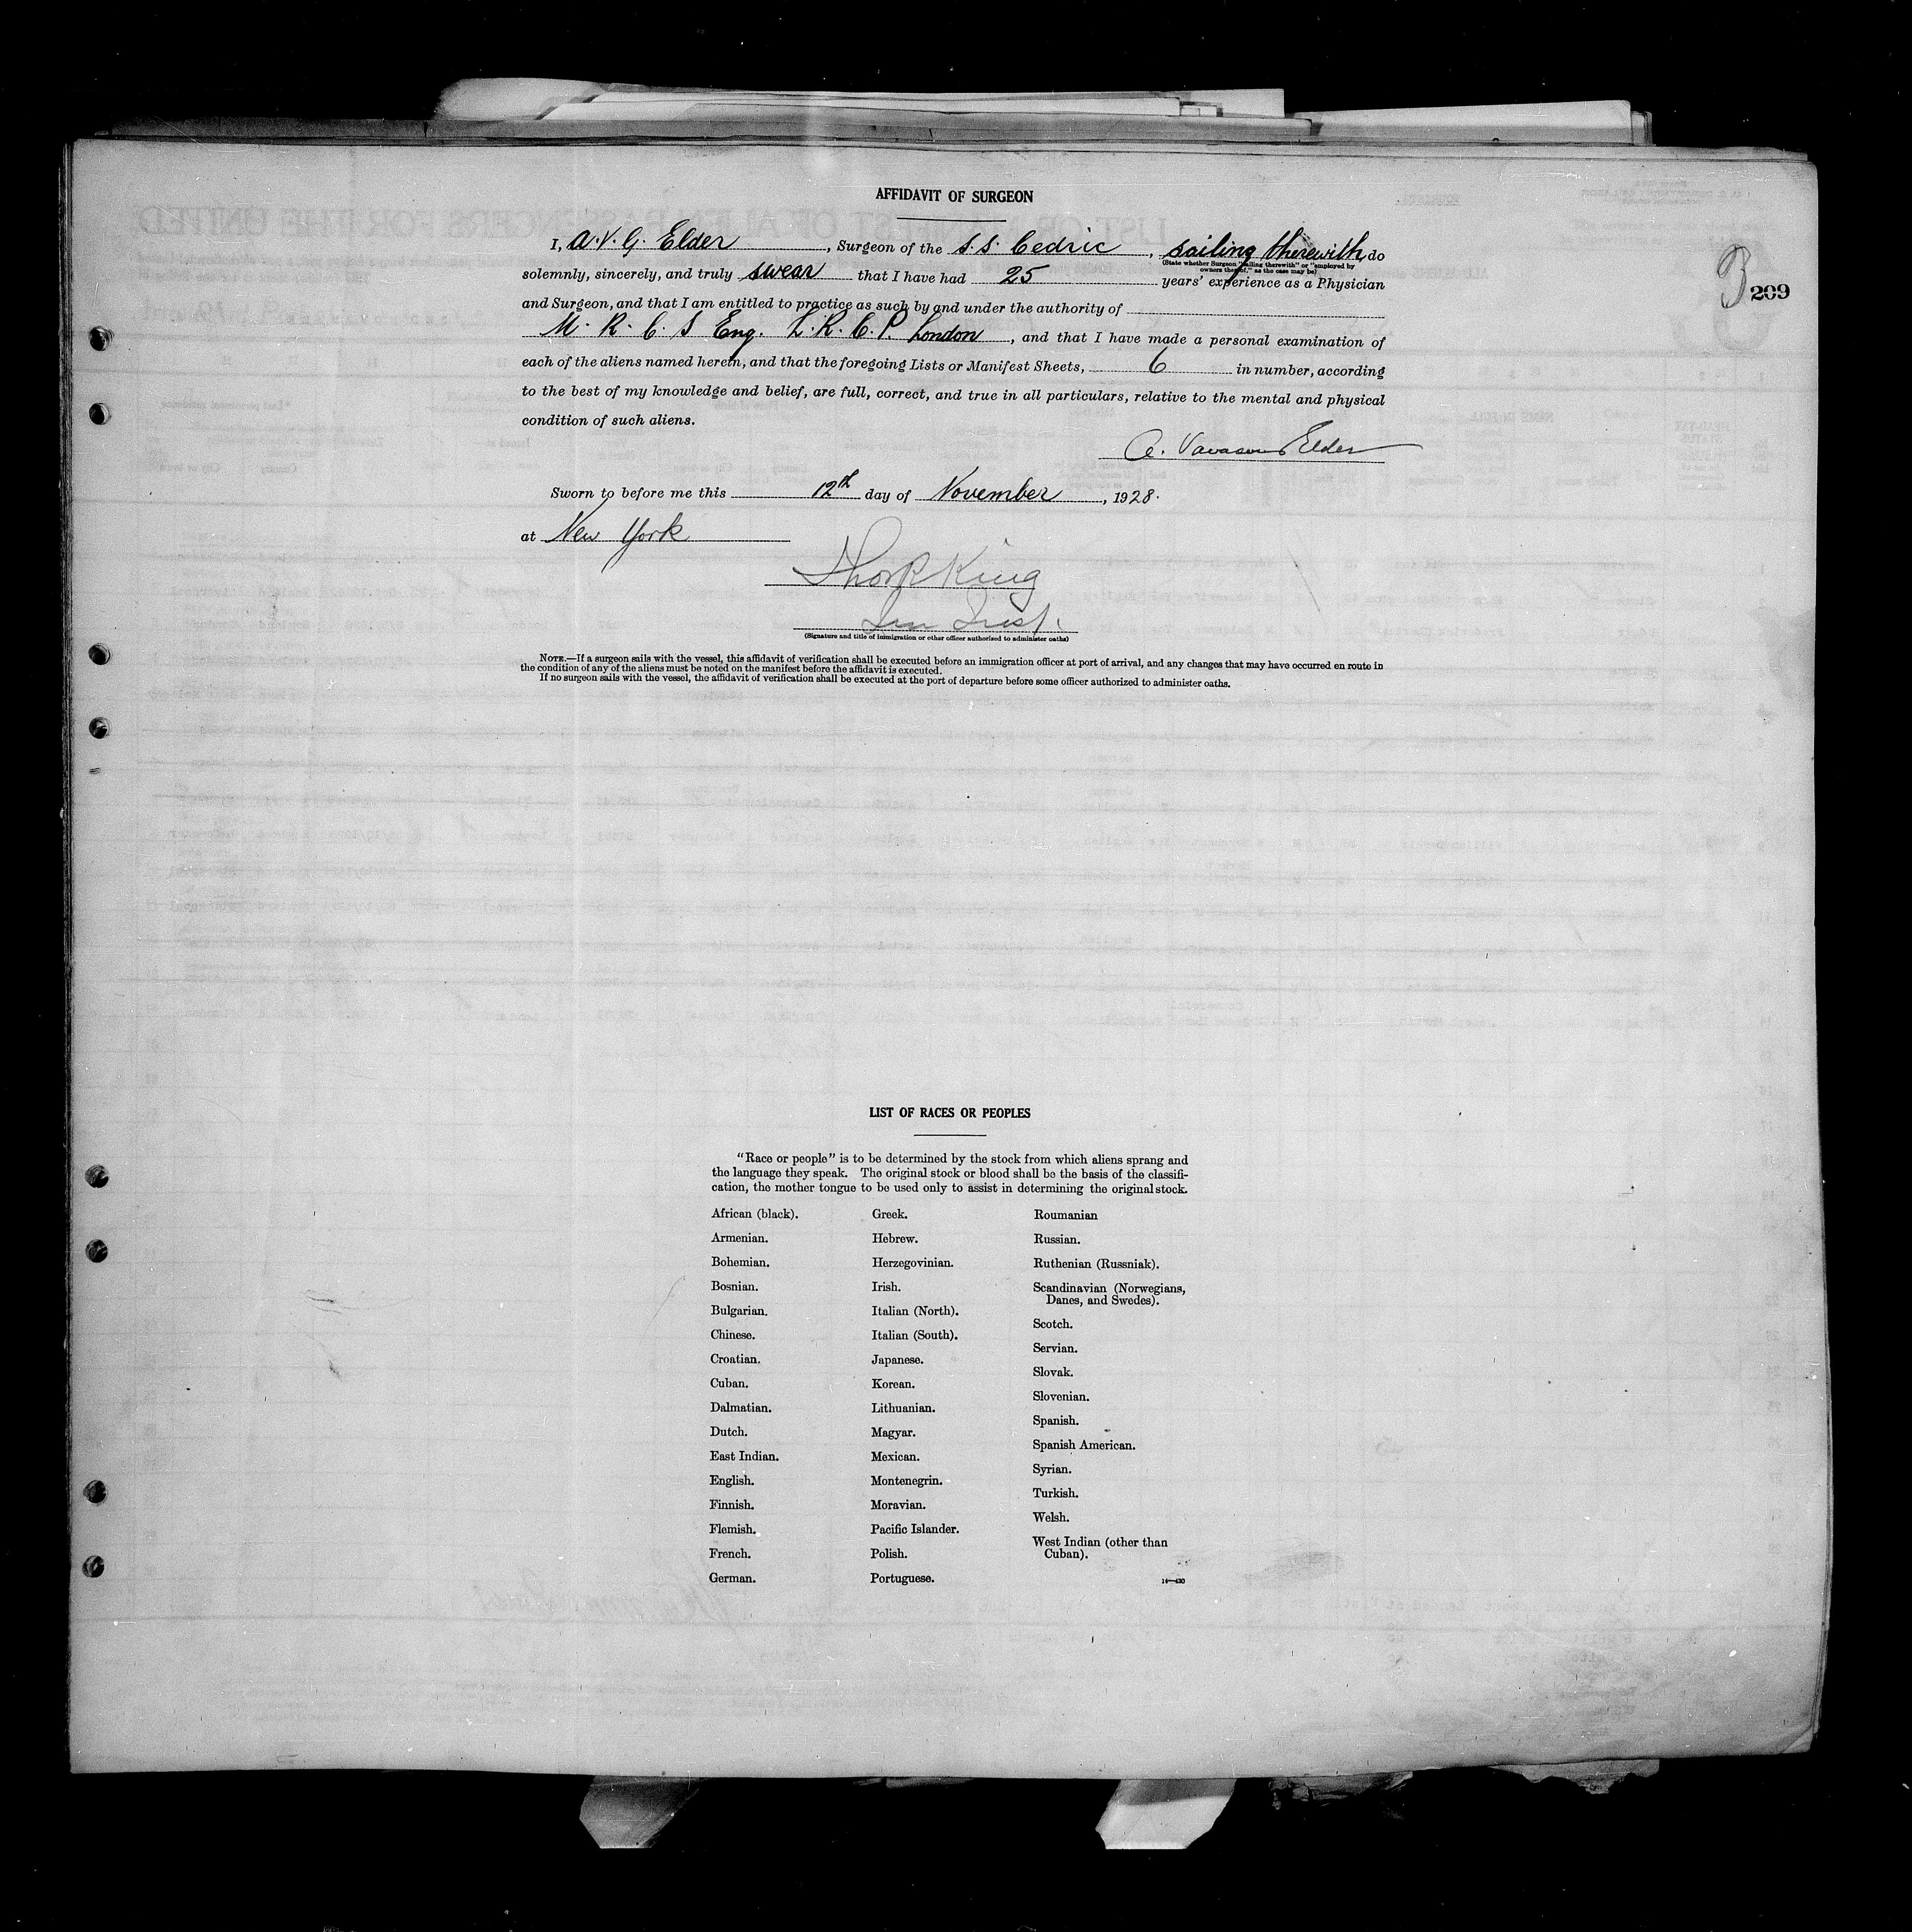 AFFIDAVIT OF SURGEON
I, A.V.G. Elder, Surgeon of the S.S. Cedric, sailing therewith do
(State whether Surgeon "sailing therewith" or "employed by owners thereof," as the case may be)
solemnly, sincerely, and truly swear that I have had 25 years' experience as a Physician
and Surgeon, and that I am entitled to practice as such by and under the authority of
M.R.C.S Eng. L.R.C.P. London, and that I have made a personal examination of
each of the aliens named herein, and that the foregoing Lists or Manifest Sheets, 6 in number, according
to the best of my knowledge and belief, are full, correct, and true in all particulars, relative to the mental and physical
condition of such aliens.
A. Vavasour Elder
Sworn to before me this 12th day of November, 1928.
at New York
King
(Signature and title of immigration or other officer authorized to administer oaths)
NOTE.—If a surgeon sails with the vessel, this affidavit of verification shall be executed before an immigration officer at port of arrival, and any changes that may have occurred en route in
the condition of any of the aliens must be noted on the manifest before the affidavit is executed.
If no surgeon sails with the vessel, the affidavit of verification shall be executed at the port of departure before some officer authorized to administer oaths.
B 209
LIST OF RACES OR PEOPLES
"Race or people" is to be determined by the stock from which aliens sprang and
the language they speak. The original stock or blood shall be the basis of the classifi-
cation, the mother tongue to be used only to assist in determining the original stock.
African (black).
Armenian.
Bohemian.
Bosnian.
Bulgarian.
Chinese.
Croatian.
Cuban.
Dalmatian.
Dutch.
East Indian.
English.
Finnish.
Flemish.
French.
German.
Greek.
Hebrew.
Herzegovinian.
Irish.
Italian (North).
Italian (South).
Japanese.
Korean.
Lithuanian.
Magyar.
Mexican.
Montenegrin.
Moravian.
Pacific Islander.
Polish.
Portuguese.
Roumanian
Russian.
Ruthenian (Russniak).
Scandinavian (Norwegians,
Danes, and Swedes).
Scotch.
Servian.
Slovak.
Slovenian.
Spanish.
Spanish American.
Syrian.
Turkish.
Welsh.
West Indian (other than
Cuban).
14—430